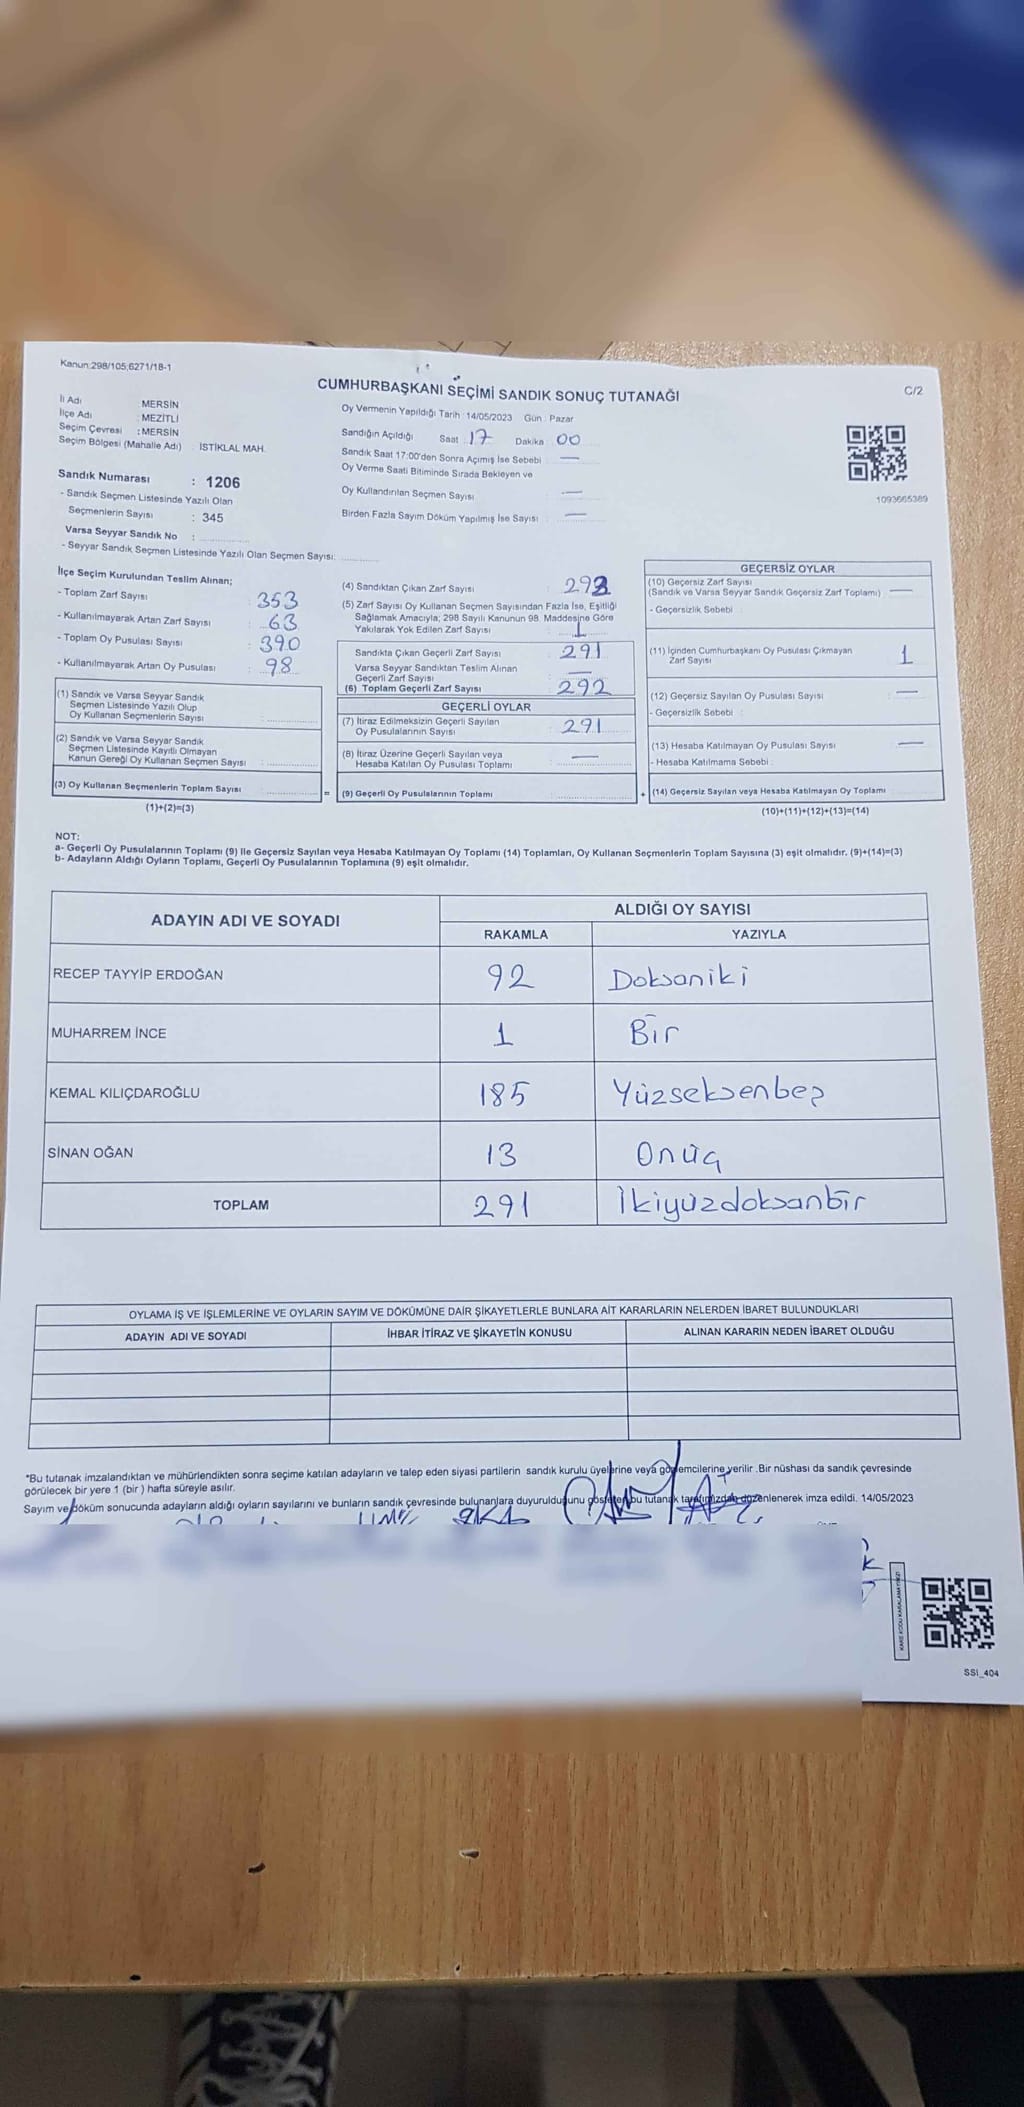 Kanun:298/105;6271/18-1
CUMHURBAŞKANI SEÇİMİ SANDIK SONUÇ TUTANAĞI
C/2
İl Adı : MERSİN
İlçe Adı : MEZİTLİ
Seçim Çevresi : MERSİN
Seçim Bölgesi (Mahalle Adı) İSTİKLAL MAH.
Sandık Numarası : 1206
- Sandık Seçmen Listesinde Yazılı Olan
Seçmenlerin Sayısı : 345
Varsa Seyyar Sandık No :
- Seyyar Sandık Seçmen Listesinde Yazılı Olan Seçmen Sayısı:
Oy Vermenin Yapıldığı Tarih : 14/05/2023 Gün : Pazar
Sandığın Açıldığı Saat 17 Dakika 00
Sandık Saat 17:00'den Sonra Açımış İse Sebebi : —
Oy Verme Saati Bitiminde Sırada Bekleyen ve
Oy Kullandırılan Seçmen Sayısı —
Birden Fazla Sayım Döküm Yapılmış İse Sayısı : —
1093665389
İlçe Seçim Kurulundan Teslim Alınan;
- Toplam Zarf Sayısı : 353
- Kullanılmayarak Artan Zarf Sayısı : 63
- Toplam Oy Pusulası Sayısı : 390
- Kullanılmayarak Artan Oy Pusulası : 98
(1) Sandık ve Varsa Seyyar Sandık
Seçmen Listesinde Yazılı Olup
Oy Kullanan Seçmenlerin Sayısı :
(2) Sandık ve Varsa Seyyar Sandık
Seçmen Listesinde Kayıtlı Olmayan
Kanun Gereği Oy Kullanan Seçmen Sayısı :
(3) Oy Kullanan Seçmenlerin Toplam Sayısı
(1)+(2)=(3)
(4) Sandıktan Çıkan Zarf Sayısı :
(5) Zarf Sayısı Oy Kullanan Seçmen Sayısından Fazla İse, Eşitliği
Sağlamak Amacıyla; 298 Sayılı Kanunun 98. Maddesine Göre
Yakılarak Yok Edilen Zarf Sayısı : 1
Sandıkta Çıkan Geçerli Zarf Sayısı : 291
Varsa Seyyar Sandıktan Teslim Alınan
Geçerli Zarf Sayısı : —
(6) Toplam Geçerli Zarf Sayısı 292
GEÇERLİ OYLAR
(7) İtiraz Edilmeksizin Geçerli Sayılan
Oy Pusulalarının Sayısı : 291
(8) İtiraz Üzerine Geçerli Sayılan veya
Hesaba Katılan Oy Pusulası Toplamı : —
= (9) Geçerli Oy Pusulalarının Toplamı
GEÇERSİZ OYLAR
(10) Geçersiz Zarf Sayısı
(Sandık ve Varsa Seyyar Sandık Geçersiz Zarf Toplamı) —
- Geçersizlik Sebebi :
(11) İçinden Cumhurbaşkanı Oy Pusulası Çıkmayan
Zarf Sayısı 1
(12) Geçersiz Sayılan Oy Pusulası Sayısı : —
- Geçersizlik Sebebi :
(13) Hesaba Katılmayan Oy Pusulası Sayısı —
- Hesaba Katılmama Sebebi :
+ (14) Geçersiz Sayılan veya Hesaba Katılmayan Oy Toplamı
(10)+(11)+(12)+(13)=(14)
NOT:
a- Geçerli Oy Pusulalarının Toplamı (9) İle Geçersiz Sayılan veya Hesaba Katılmayan Oy Toplamı (14) Toplamları, Oy Kullanan Seçmenlerin Toplam Sayısına (3) eşit olmalıdır. (9)+(14)=(3)
b- Adayların Aldığı Oyların Toplamı, Geçerli Oy Pusulalarının Toplamına (9) eşit olmalıdır.
ADAYIN ADI VE SOYADI ALDIĞI OY SAYISI
RAKAMLA YAZIYLA
RECEP TAYYİP ERDOĞAN 92 Doksaniki
MUHARREM İNCE 1 Bir
KEMAL KILIÇDAROĞLU 185 Yüzseksenbeş
SİNAN OĞAN 13 Onüç
TOPLAM 291 İkiyüzdoksanbir
OYLAMA İŞ VE İŞLEMLERİNE VE OYLARIN SAYIM VE DÖKÜMÜNE DAİR ŞİKAYETLERLE BUNLARA AİT KARARLARIN NELERDEN İBARET BULUNDUKLARI
ADAYIN ADI VE SOYADI İHBAR İTİRAZ VE ŞİKAYETİN KONUSU ALINAN KARARIN NEDEN İBARET OLDUĞU
*Bu tutanak imzalandıktan ve mühürlendikten sonra seçime katılan adayların ve talep eden siyasi partilerin sandık kurulu üyelerine veya gözlemcilerine verilir .Bir nüshası da sandık çevresinde
görülecek bir yere 1 (bir ) hafta süreyle asılır.
Sayım ve döküm sonucunda adayların aldığı oyların sayılarını ve bunların sandık çevresinde bulunanlara duyurulduğunu gösteren bu tutanak tarafımızdan düzenlenerek imza edildi. 14/05/2023
KARE KODU KARALAMAYINIZ!
SSI_404